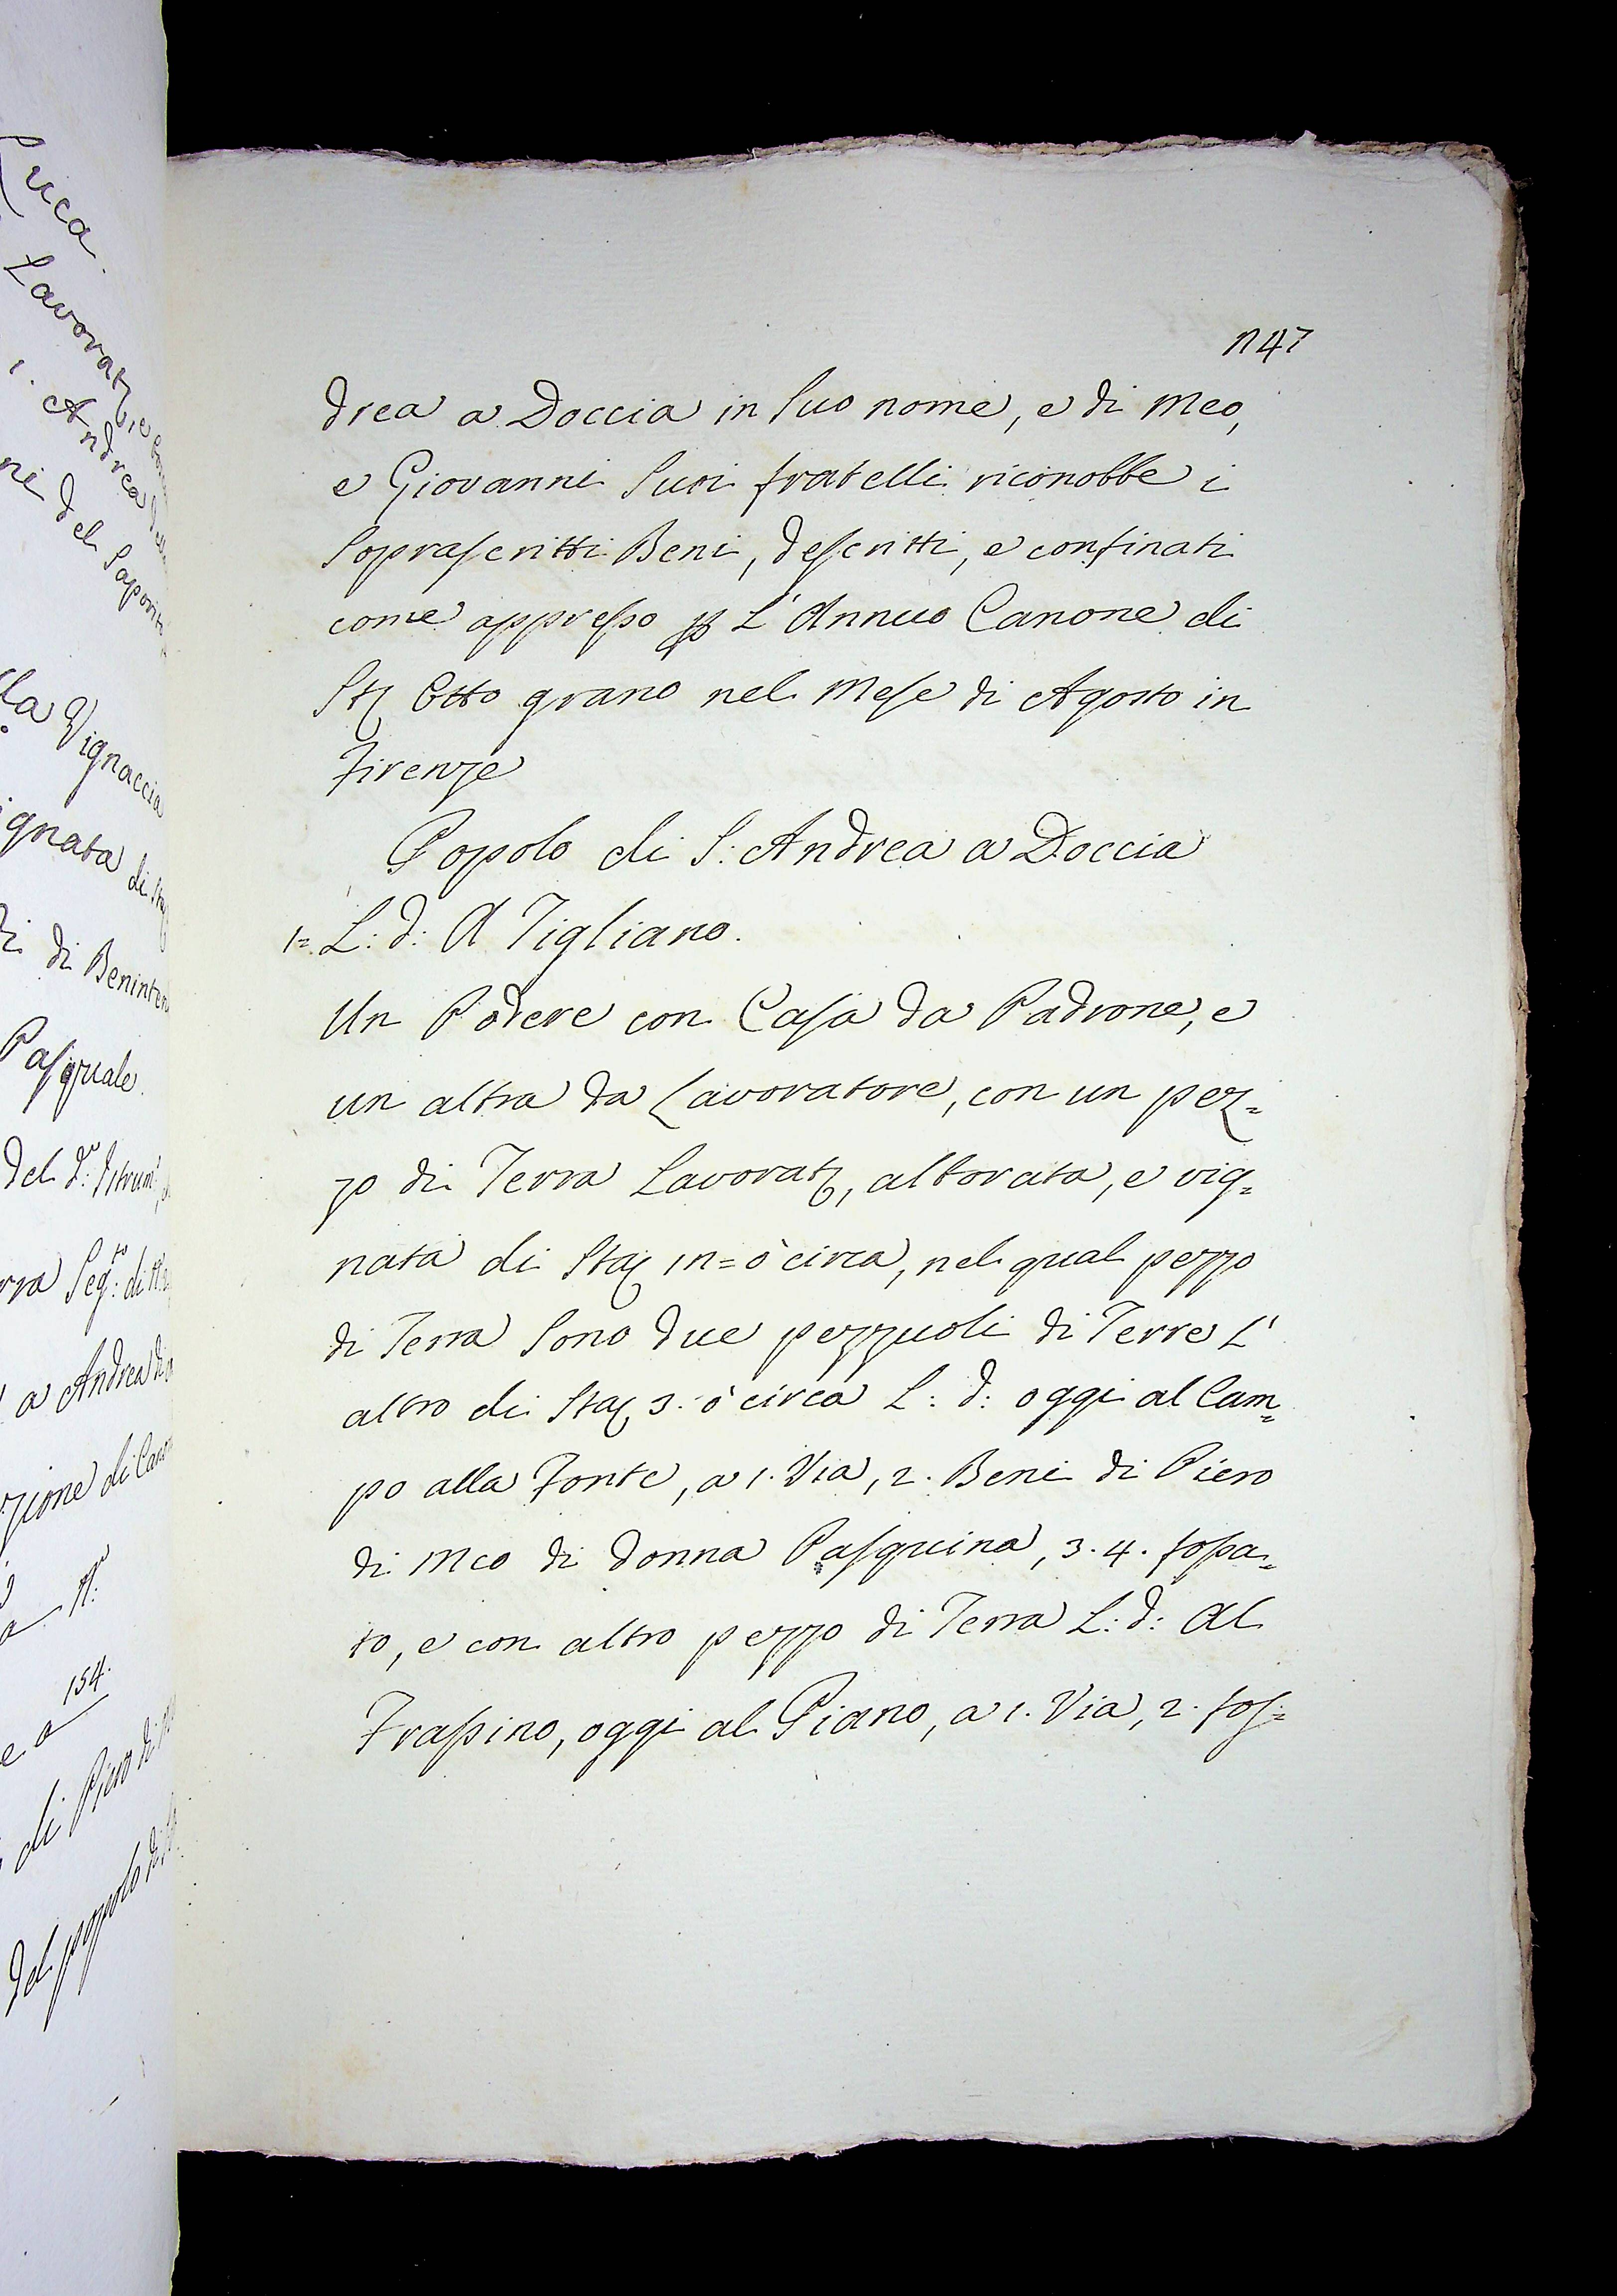 Luca
Lavorat, e
1. Andrea
ni del Saporito
la Vignaccia
ignata di Sta
di Beninten
Pasquale.
del d.º Istrum
rra Seg.to di
a Andrea di
zione di Can
154.
di Piero di
del popolo di
n47
drea a Doccia in Suo nome, e di Meo,
e Giovanni Suoi fratelli riconobbe i
Soprascritti Beni, descritti, e confinati
come appresso p L'Annuo Canone di
Sta Otto grano nel Mese di Agosto in
Firenze
Popolo di S: Andrea a Doccia
1=. L: d: A Tigliano.
Un Podere con Casa da Padrone, e
un altra da Lavoratore, con un pez=
zo di Terra Lavorat, alborata, e vig=
nata di Sta in=ò circa, nel qual pezzo
di Terra Sono due pezzuoli di Terre L'
altro di Sta 3. ò circa L: d: oggi al Cam=
po alla Fonte, a 1. Via, 2. Beni di Piero
di Meo di Donna Pasquina, 3. 4. fossa=
to, e con altro pezzo di Terra L: d: Al
Frassino, oggi al Piano, a 1. Via, 2. fos=